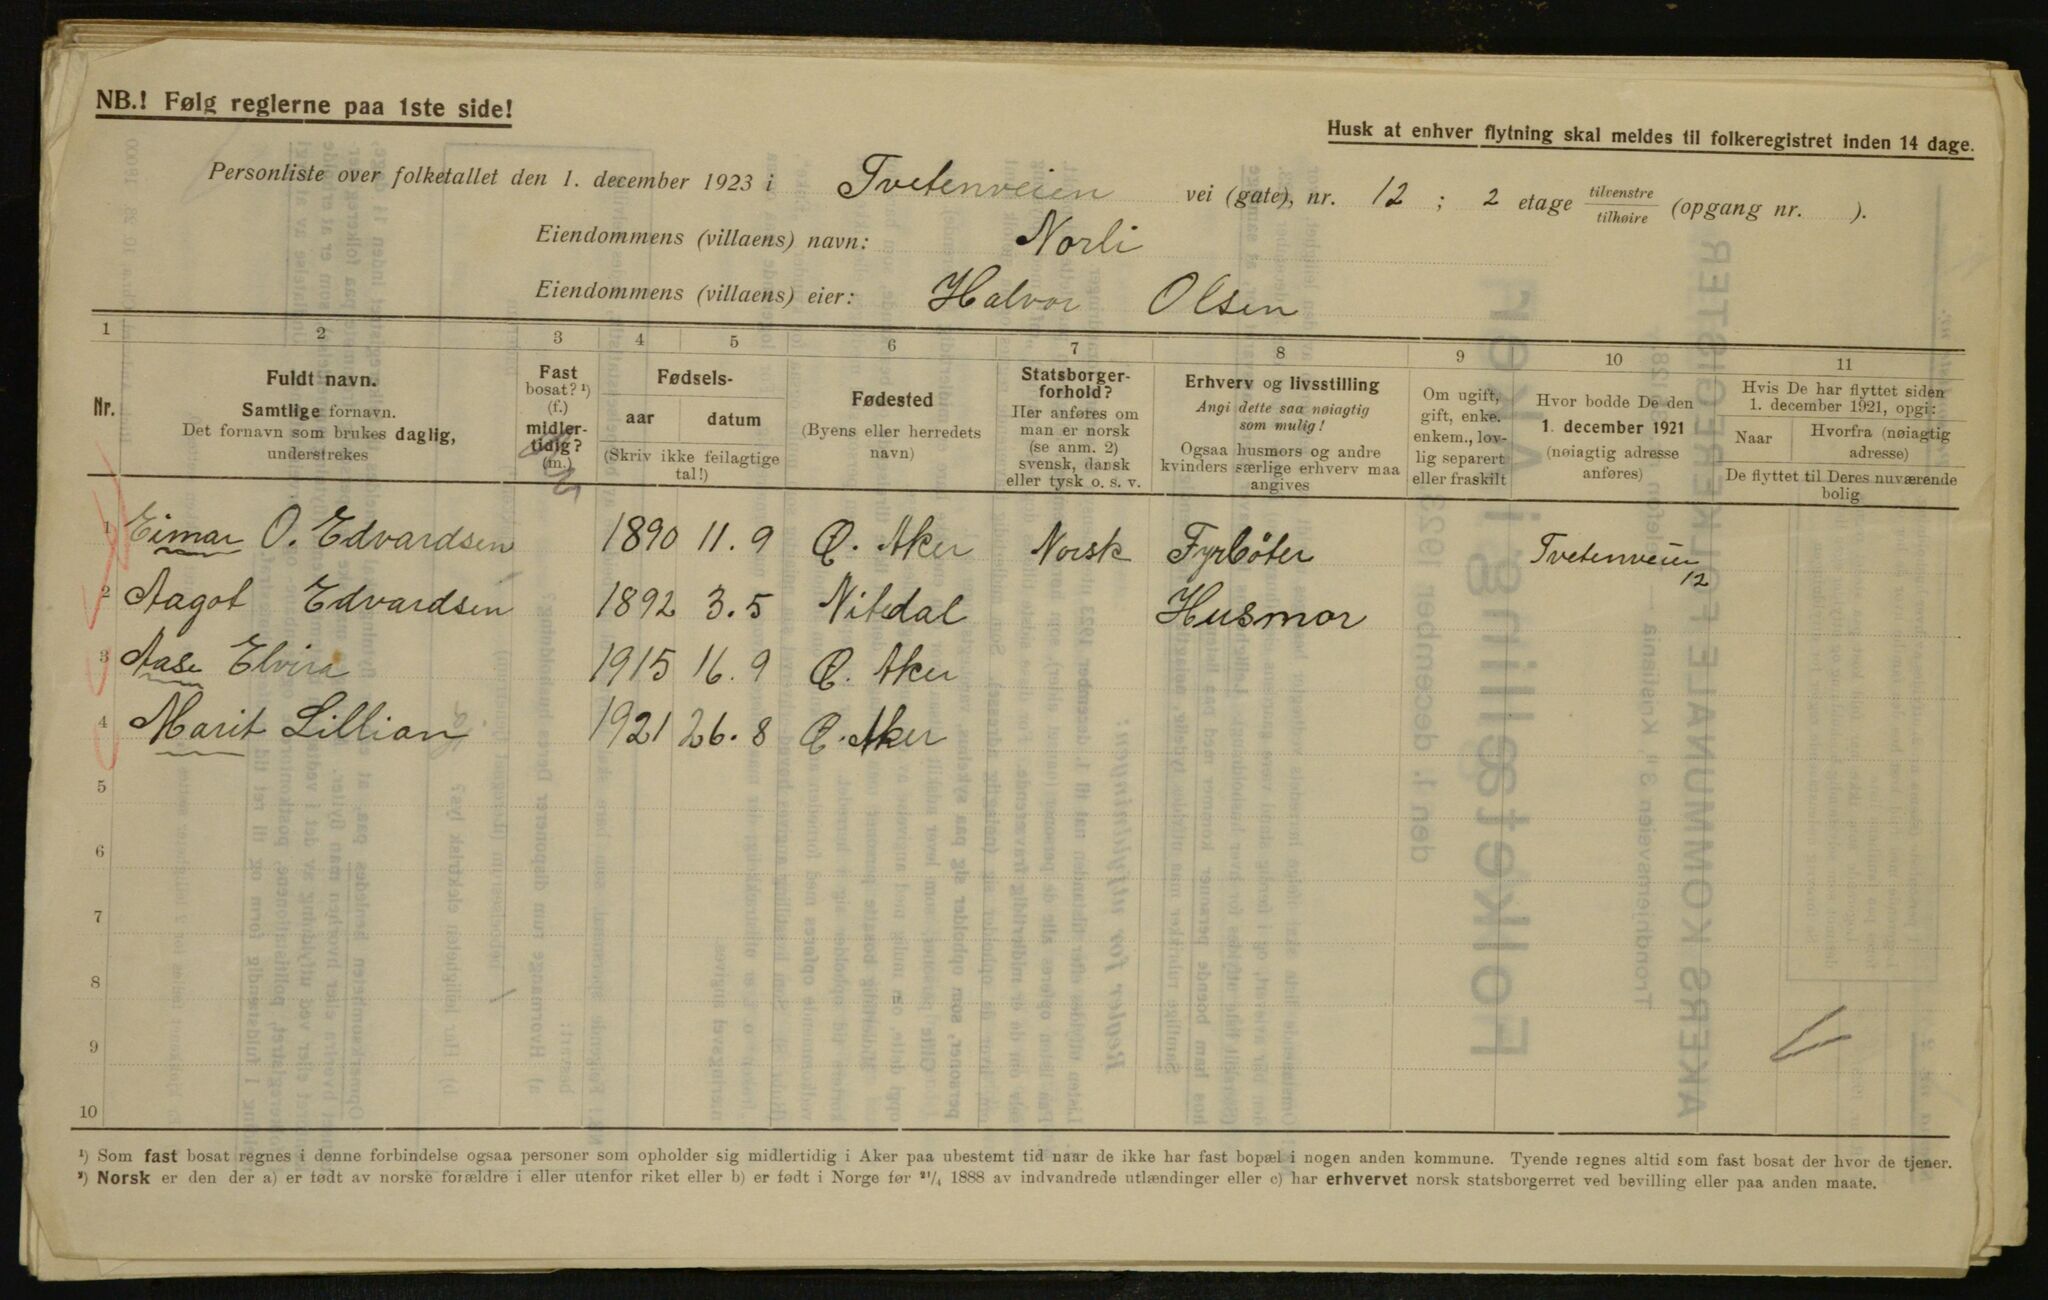 NB.! Følg reglerne paa 1ste side!
Husk at enhver flytning skal meldes til folkeregistret inden 14 dage.
Personliste over folketallet den 1. december 1923 i Tvetenveien vei (gate), nr. 12 ; 2 etage tilvenstre / tilhøire (opgang nr. ).
Eiendommens (villaens) navn: Norli
Eiendommens (villaens) eier: Halvor Olsen
1 2 3 4 5 6 7 8 9 10 11
Nr.
Fuldt navn.
Samtlige fornavn.
Det fornavn som brukes daglig,
understrekes
Fast
bosat? ¹)
(f.)
midler-
tidig?
(m.)
Fødsels-
aar datum
(Skriv ikke feilagtige
tal!)
Fødested
(Byens eller herredets
navn)
Statsborger-
forhold?
Her anføres om
man er norsk
(se anm. 2)
svensk, dansk
eller tysk o. s. v.
Erhverv og livsstilling
Angi dette saa nøiagtig
som mulig!
Ogsaa husmors og andre
kvinders særlige erhverv maa
angives
Om ugift,
gift, enke.
enkem., lov-
lig separert
eller fraskilt
Hvor bodde De den
1. december 1921
(nøiagtig adresse
anføres)
Hvis De har flyttet siden
1. december 1921, opgi:
Naar
Hvorfra (nøiagtig
adresse)
De flyttet til Deres nuværende
bolig
1 Eimar O. Edvardsen 1890 11.9 Ø. Aker Norsk Fyrbøter Tvetenveien 12
2 Aagot Edvardsen 1892 3.5 Nitedal Husmor
3 Aase Elvira 1915 16.9 Ø. Aker
4 Marit Lillian 1921 26.8 Ø. Aker
5
6
7
8
9
10
¹) Som fast bosat regnes i denne forbindelse ogsaa personer som opholder sig midlertidig i Aker paa ubestemt tid naar de ikke har fast bopæl i nogen anden kommune. Tyende regnes altid som fast bosat der hvor de tjener.
²) Norsk er den der a) er født av norske forældre i eller utenfor riket eller b) er født i Norge før ²¹/₄ 1888 av indvandrede utlændinger eller c) har erhvervet norsk statsborgerret ved bevilling eller paa anden maate.